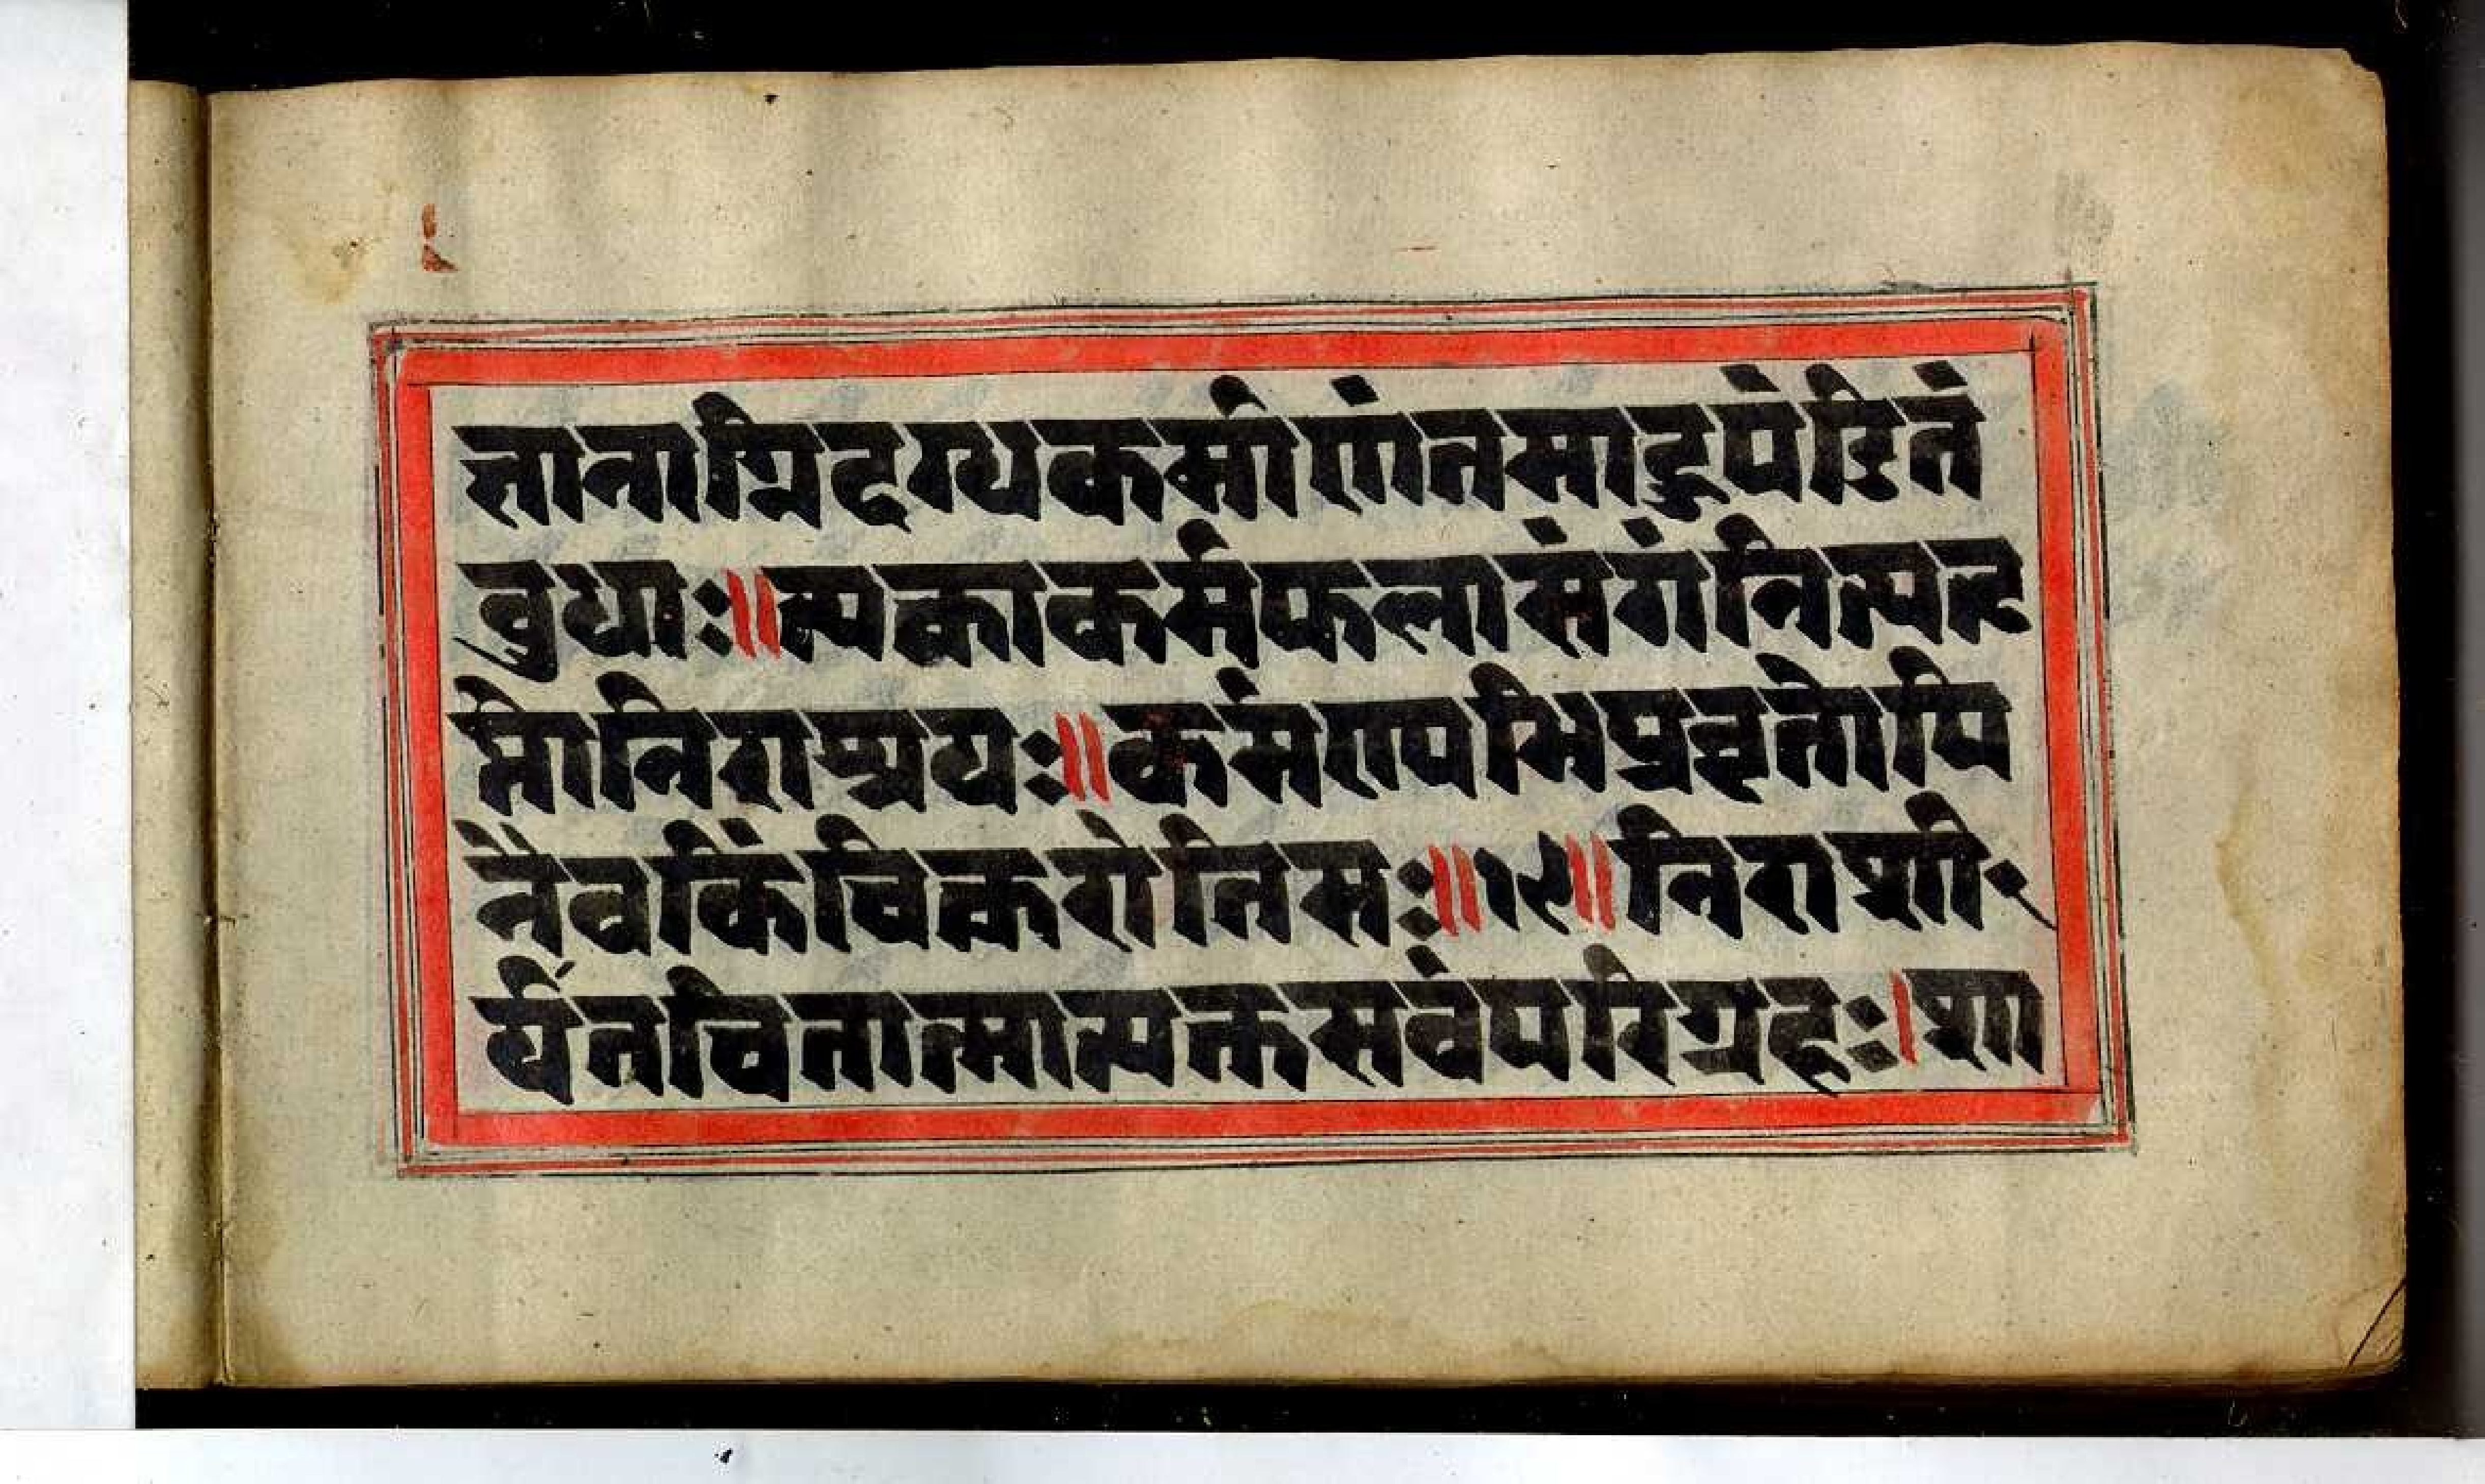 ज्ञानाग्निदग्धकर्माणंतमाहुःपंडितं
बुधाः॥त्यक्त्वाकर्मफलासंगंनित्यतृ
प्तोनिराश्रयः॥कर्मण्यभिप्रवृत्तोपि
नैवकिंचित्करोतिसः॥१९॥निराशी
र्यतचित्तात्मात्यक्तसर्वपरिग्रहः।शा